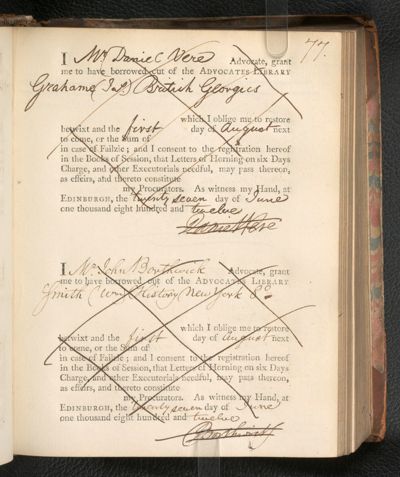 77.
I Mr. Daniel Vere Advocate, grant
me to have borrowed out of the ADVOCATES LIBRARY
Grahame (Jas.) British Georgics
which I oblige me to restore
betwixt and the first day of August next
to come, or the Sum of
in case of Failzie; and I consent to the registration hereof
in the Books of Session, that Letters of Horning on six Days
Charge, and other Executorials needful, may pass thereon,
as effeirs, and thereto constitute
my Procurators. As witness my Hand, at
EDINBURGH, the twenty seven day of June
one thousand eight hundred and twelve
Daniel Vere
I Mr. John Borthwick Advocate, grant
me to have borrowed out of the ADVOCATES LIBRARY
Smith (Wm) History New York 8o.
which I oblige me to restore
betwixt and the first day of August next
to come, or the Sum of
in case of Failzie; and I consent to the registration hereof
in the Books of Session, that Letters of Horning on six Days
Charge, and other Executorials needful, may pass thereon,
as effeirs, and thereto constitute
my Procurators. As witness my Hand, at
EDINBURGH, the twenty seven day of June
one thousand eight hundred and twelve
J Borthwick